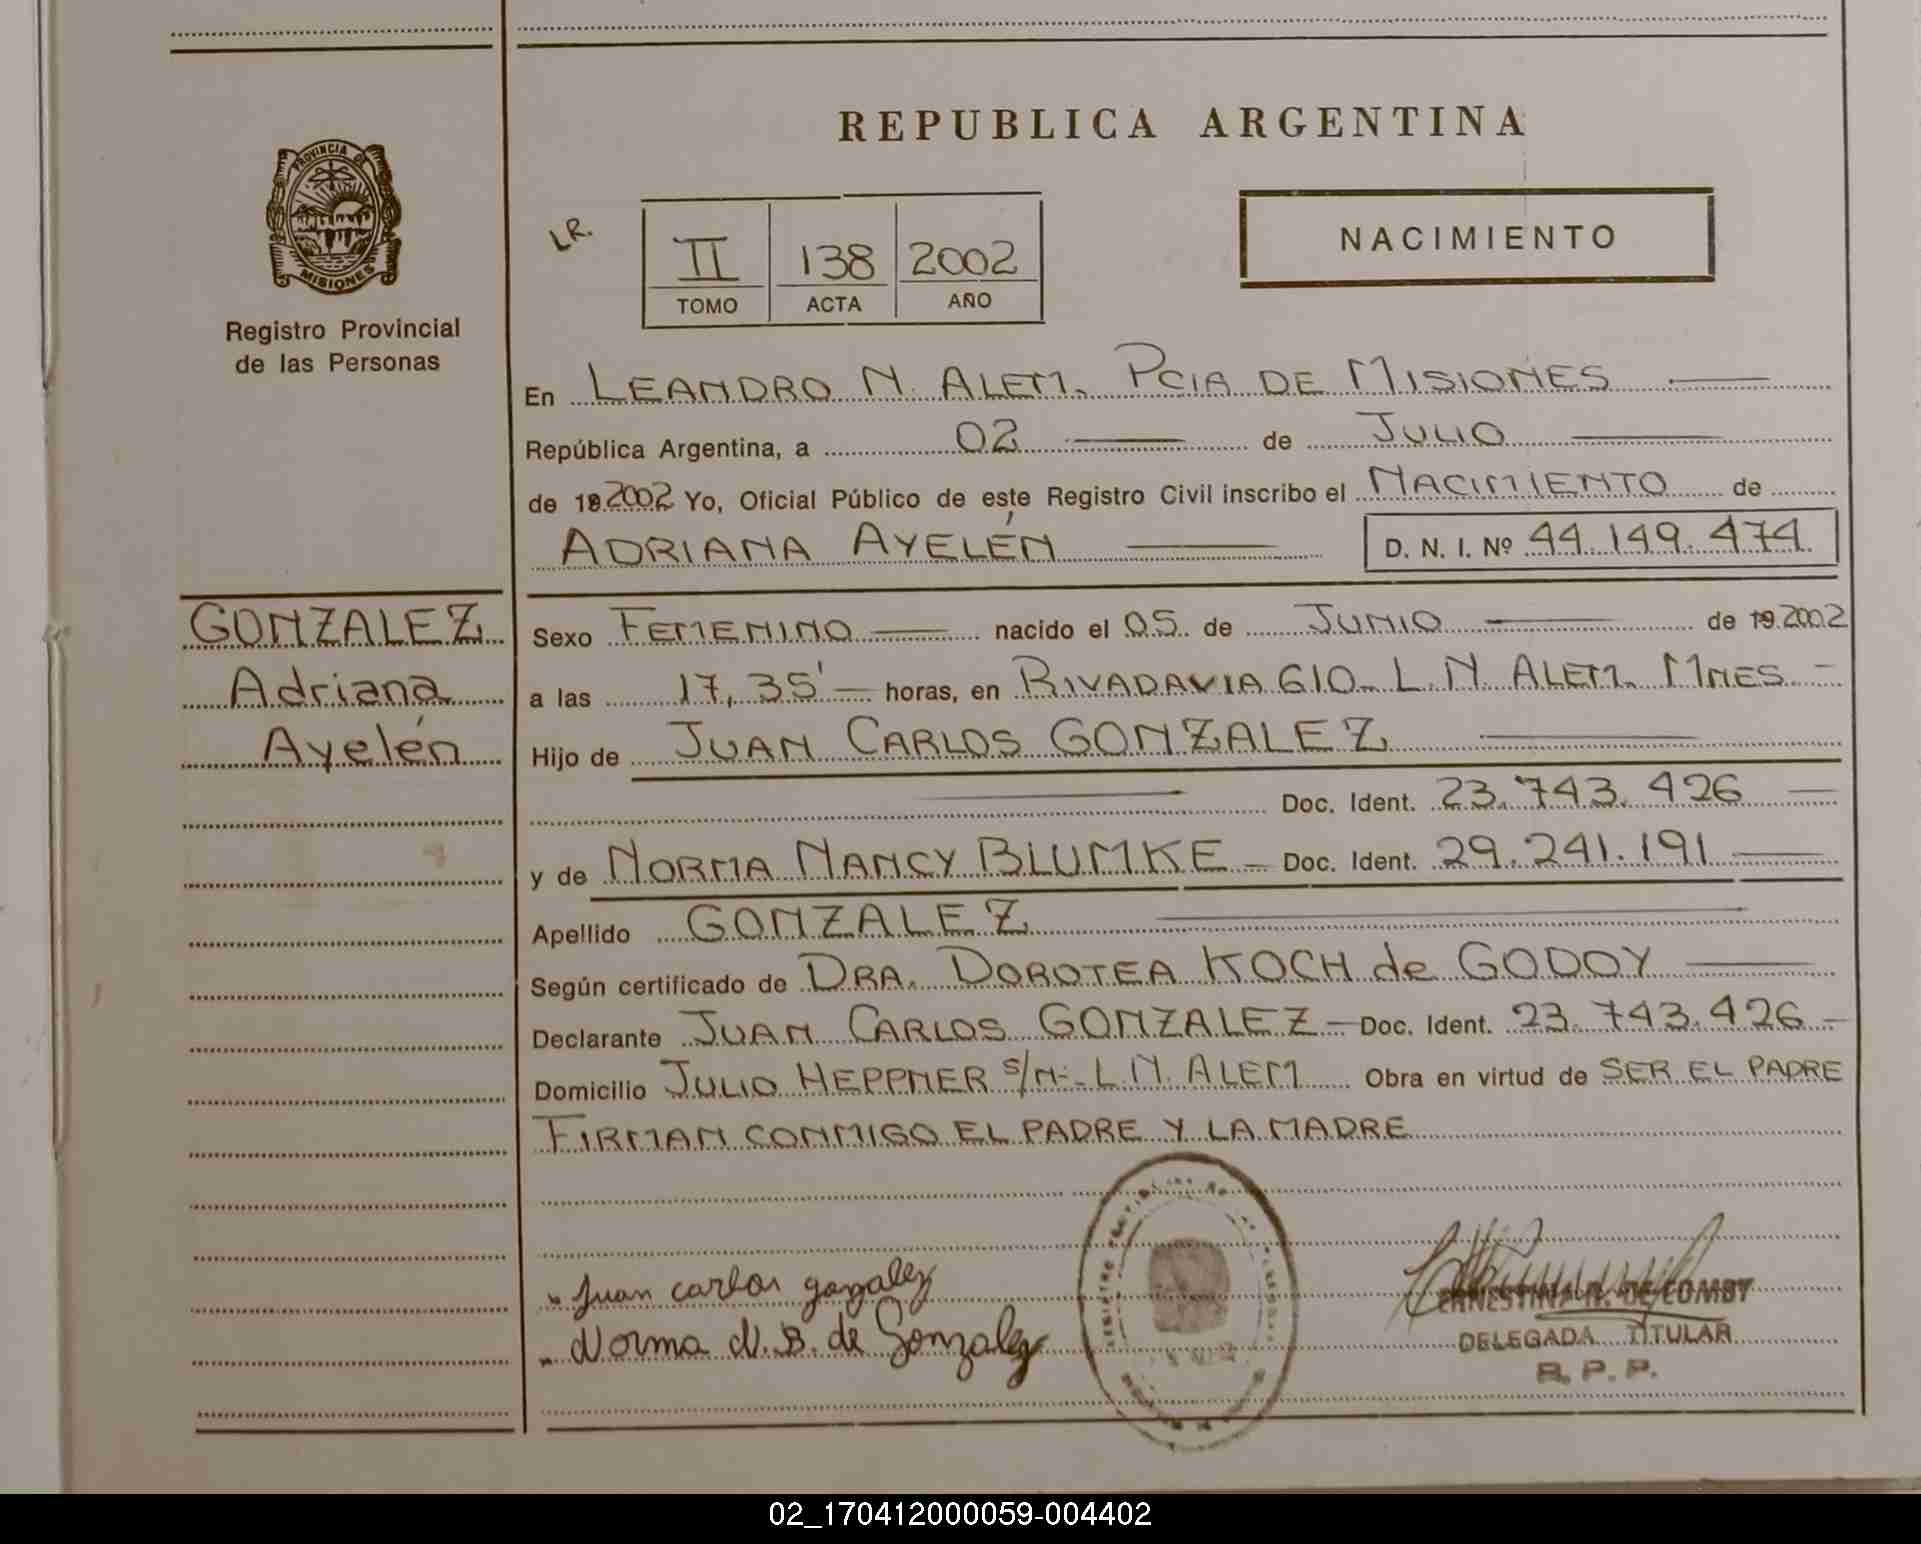 REPUBLICA ARGENTINA
PROVINCIA DE
MISIONES
Registro Provincial
de las Personas
LR.
II 138 2002
TOMO ACTA AÑO
NACIMIENTO
En LEANDRO N. ALEM. PCIA DE MISIONES
República Argentina, a 02 de JULIO
de 19 2002 Yo, Oficial Público de este Registro Civil inscribo el NACIMIENTO de
ADRIANA AYELÉN D. N. I. Nº 44.149.474
GONZALEZ
Adriana
Ayelén
Sexo FEMENINO nacido el 05 de JUNIO de 19 2002
a las 17,35' horas, en RIVADAVIA 610 - L.N. ALEM. MNES. -
Hijo de JUAN CARLOS GONZALEZ
Doc. Ident. 23.743.426
y de NORMA NANCY BLUMKE - Doc. Ident. 29.241.191
Apellido GONZALEZ
Según certificado de DRA. DOROTEA KOCH de GODOY
Declarante JUAN CARLOS GONZALEZ - Doc. Ident. 23.743.426 -
Domicilio JULIO HEPPNER S/N - L.N. ALEM Obra en virtud de SER EL PADRE
FIRMAN CONMIGO EL PADRE Y LA MADRE
Juan carlos gonzalez
Norma N. B. de Gonzalez
DE COMBY
DELEGADA TITULAR
R. P. P.
02_170412000059-004402